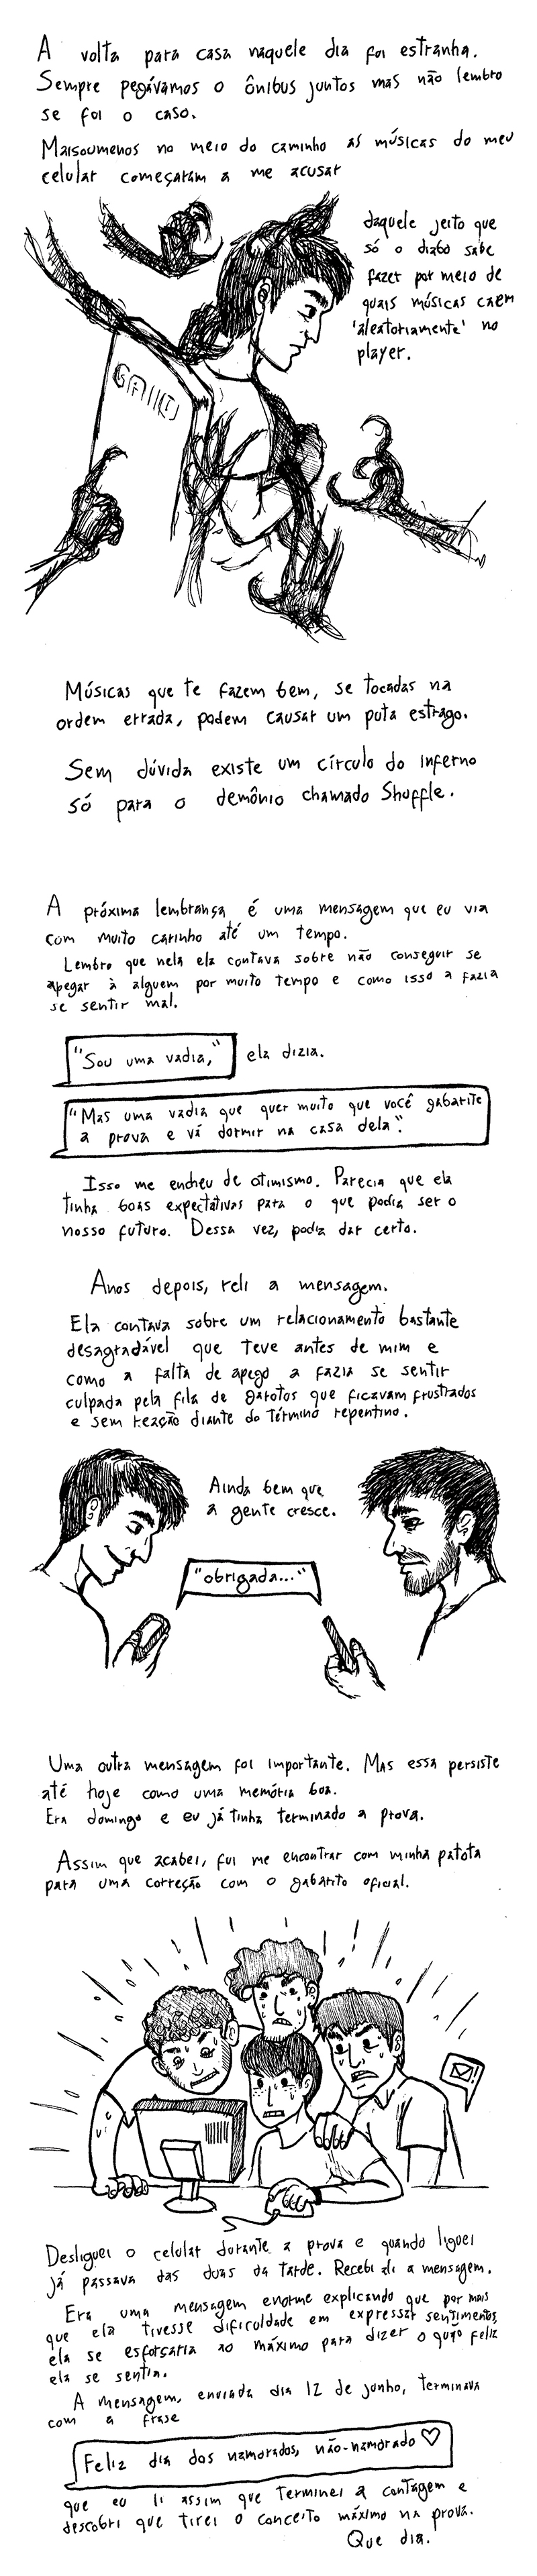 A volta para casa naquele dia foi estranha.
Sempre pegávamos o ônibus juntos mas não lembro
se foi o caso.
Maisoumenos no meio do caminho as músicas do meu
celular começaram a me acusar
daquele jeito que
só o diabo sabe
fazer por meio de
quais músicas caem
'aleatoriamente' no
player.
Músicas que te fazem bem, se tocadas na
ordem errada, podem causar um puta estrago.
Sem dúvida existe um círculo do inferno
só para o demônio chamado Shuffle.
A próxima lembrança é uma mensagem que eu via
com muito carinho até um tempo.
Lembro que nela ela contava sobre não conseguir se
apegar à alguem por muito tempo e como isso a fazia
se sentir mal.
"Sou uma vadia," ela dizia.
"Mas uma vadia que quer muito que você gabarite
a prova e vá dormir na casa dela".
Isso me encheu de otimismo. Parecia que ela
tinha boas expectativas para o que podia ser o
nosso futuro. Dessa vez, podia dar certo.
Anos depois, reli a mensagem.
Ela contava sobre um relacionamento bastante
desagradável que teve antes de mim e
como a falta de apego a fazia se sentir
culpada pela fila de garotos que ficavam frustrados
e sem reação diante do término repentino.
Ainda bem que
a gente cresce.
"obrigada..."
Uma outra mensagem foi importante. Mas essa persiste
até hoje como uma memória boa.
Era domingo e eu já tinha terminado a prova.
Assim que acabei, fui me encontrar com minha patota
para uma correção com o gabarito oficial.
Desliguei o celular durante a prova e quando liguei
já passava das duas da tarde. Recebi ali a mensagem.
Era uma mensagem enorme explicando que por mais
que ela tivesse dificuldade em expressar sentimentos,
ela se esforçaria ao máximo para dizer o quão feliz
ela se sentia.
A mensagem, enviada dia 12 de junho, terminava
com a frase
Feliz dia dos namorados, não-namorado ♡
que eu li assim que terminei a contagem e
descobri que tirei o conceito máximo na prova.
Que dia.